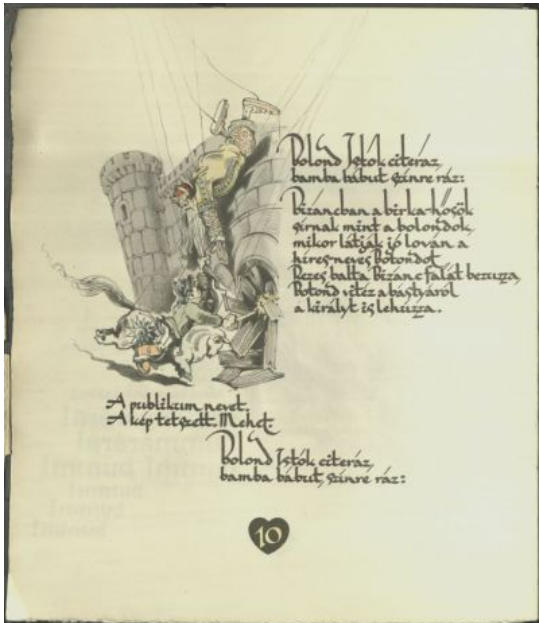 Bolond Istók citeráz,
bamba bábut színre ráz:
Bizáncban a birka-hősök
sírnak mint a bolondok,
mikor látják jó lován a
híres-neves Botondot.
Rezes balta Bizánc falát bezuzza,
Botond vitéz a bástyáról
a királyt is lehúzza.
A publikum nevet.
A kép tetszett. Mehet.
Bolond Istók citeráz,
bamba bábut, színre ráz:
10